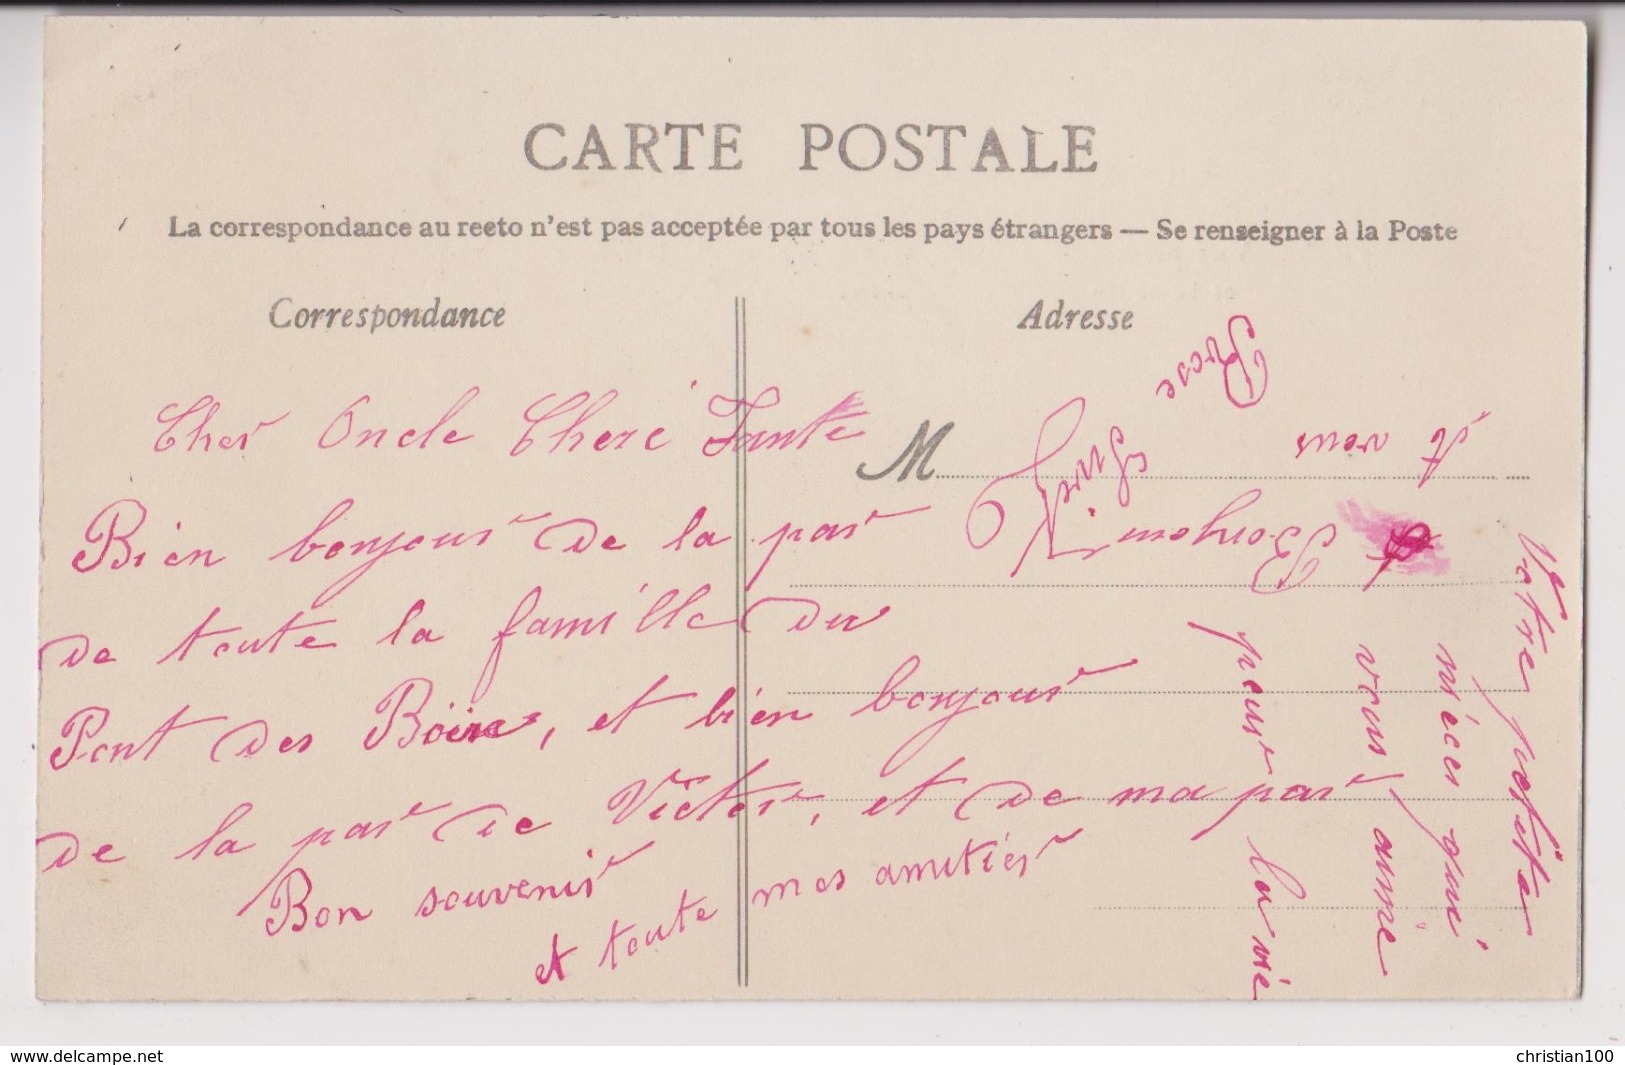 CARTE POSTALE
La correspondance au recto n'est pas acceptée par tous les pays étrangers — Se renseigner à la Poste
Correspondance
Adresse
M
Cher Oncle Cheré Tante
Bien bonjour de la par
de toute la famille du
Pont des Boire, et bien bonjour
de la par de Victor, et de ma par
Bon souvenir
et toute mes amitiér
Votre petite
niéce qui
vous aime
pour la vie
et vous
Bonjour
Rose
www.delcampe.net
christian100